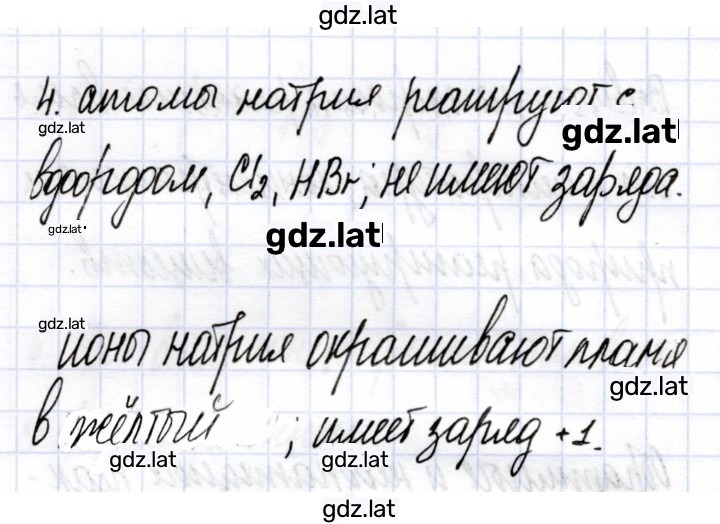 gdz.lat
4. атомы натрия реагируют с
gdz.lat gdz.lat
водородом, Cl₂, HBr; не имеют заряда.
gdz.lat gdz.lat
gdz.lat
ионы натрия окрашивают пламя
gdz.lat
в жёлтый ; имеет заряд +1.
gdz.lat gdz.lat
gdz.lat